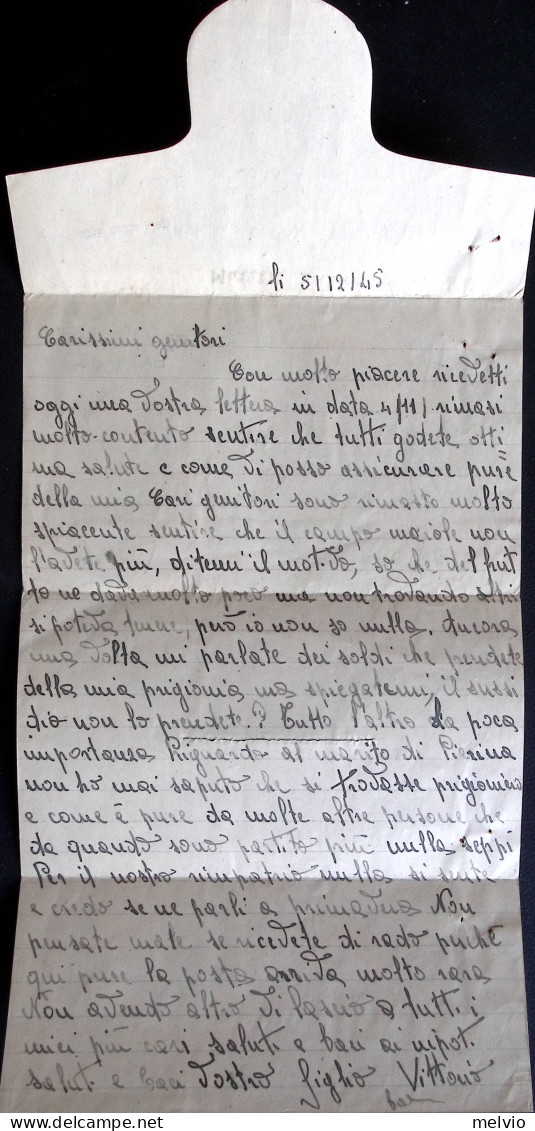 li 5/12/45
Carissimi genitori
Con molto piacere ricevetti
oggi una vostra lettera in data 4/11/ rimasi
molto contento sentire che tutti godete otti
ma salute e come vi posso assicurare pure
della mia Cari genitori sono rimasto molto
spiacente sentire che il campo maiole non
l'avete più, ditemi il motivo, so che del frut
to ne dava molto poco ma non trovando altri
si poteva tenere, però io non so nulla. Ancora
una volta mi parlate dei soldi che prendete
della mia prigionia ma spiegatemi, il sussi
dio non lo prendete.? Tutto l'altro da poca
importanza Riguardo al marito di Pierina
non ho mai saputo che si trovasse prigioniero
e come è pure da molte altre persone che
da quando sono partito più nulla seppi
Per il nostro rimpatrio nulla si sente
e credo se ne parli a primavera Non
pensate male se ricevete di rado perchè
qui pure la posta arriva molto rara
Non avendo altro vi lascio a tutti i
miei più cari saluti e baci ai nipoti
saluti e baci vostro figlio Vittorio
melvio